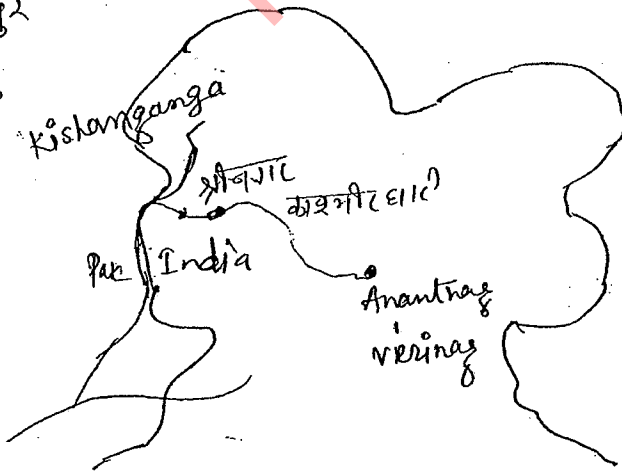 Kishanganga
श्रीनगर
काश्मीर घाटी
Pak India
Anantnag
Verinag